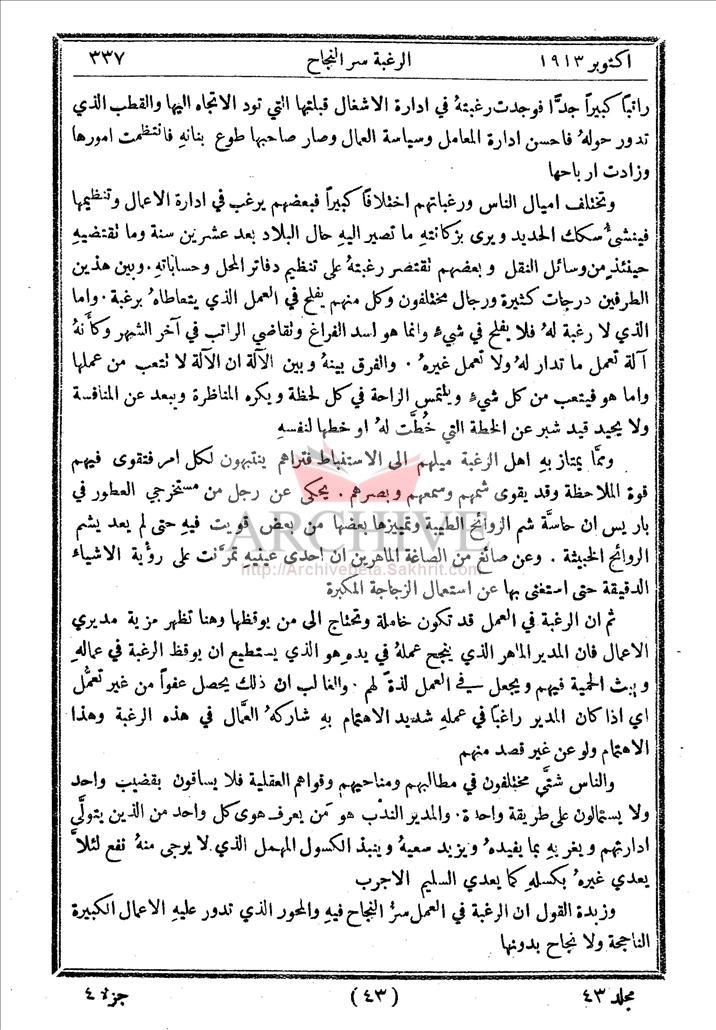 اكتوبر ١٩١٣ الرغبة سر النجاح ٣٣٧
راتباً كبيراً جدًّا فوجدت رغبتهُ في ادارة الاشغال قبلتها التي تود الاتجاه اليها والقطب الذي
تدور حولهُ فاحسن ادارة المعامل وسياسة العمال وصار صاحبها طوع بنانهِ فانتظمت امورها
وزادت ارباحها
وتختلف اميال الناس ورغباتهم اختلافاً كبيراً فبعضهم يرغب في ادارة الاعمال وتنظيمها
فينشئُ سكك الحديد ويرى بزكانتهِ ما تصير اليهِ حال البلاد بعد عشرين سنة وما نقتضيهِ
حينئذٍ من وسائل النقل وبعضهم نقتصر رغبتهُ على تنظيم دفاتر المحل وحساباتهِ. وبين هذين
الطرفين درجات كثيرة ورجال مختلفون وكل منهم يفلح في العمل الذي يتعاطاهُ برغبة. واما
الذي لا رغبة لهُ فلا يفلح في شيءٍ وانما هو لسد الفراغ وثقاضي الراتب في آخر الشهر وكأَنهُ
آلة تعمل ما تدار لهُ ولا تعمل غيرهُ. والفرق بينهُ وبين الآلة ان الآلة لا نتعب من عملها
واما هو فيتعب من كل شيءٍ ويلتمس الراحة في كل لحظة ويكره المناظرة ويبعد عن المنافسة
ولا يحيد قيد شبر عن الخطة التي خُطَّت لهُ او خطها لنفسهِ
وممَّا يمتاز بهِ اهل الرغبة ميلهم الى الاستنباط فتراهم ينتبهون لكل امر فتقوى فيهم
قوة الملاحظة وقد يقوى شمهم وسمعهم وبصرهم. يحكى عن رجل من مستخرجي العطور في
باريس ان حاسَّة شم الروائح الطيبة وتمييزها بعضها من بعض قويت فيهِ حتى لم يعد يشم
الروائح الخبيثة. وعن صائغ من الصاغة الماهرين ان احدى عينيهِ تمرَّنت على رؤية الاشياء
الدقيقة حتى استغنى بها عن استعمال الزجاجة المكبرة
ARCHIVE
http://Archivebeta.Sakhrit.com
ثم ان الرغبة في العمل قد تكون خاملة وتحتاج الى من يوقظها وهنا تظهر مزية مديري
الاعمال فان المدير الماهر الذي ينجح عملهُ في يدهِ هو الذي يستطيع ان يوقظ الرغبة في عمالهِ
ويبث الحمية فيهم ويجعل في العمل لذةً لهم. والغالب ان ذلك يحصل عفواً من غير تعمُّل
اي اذا كان المدير راغباً في عملهِ شديد الاهتمام بهِ شاركهُ العمَّال في هذه الرغبة وهذا
الاهتمام ولو عن غير قصد منهم
والناس شتَّى مختلفون في مطالبهم ومناحيهم وقواهم العقلية فلا يساقون بقضيب واحد
ولا يستمالون على طريقة واحدة. والمدير الندْب هو مَن يعرف هوى كل واحد من الذين يتولَّى
ادارتهم ويغريهِ بما يفيدهُ ويزيد سعيهُ وينبذ الكسول المهمل الذي لا يرجى منهُ نفع لئلاَّ
يعدي غيرهُ بكسلهِ كما يعدي السليم الاجرب
وزبدة القول ان الرغبة في العمل سرُّ النجاح فيهِ والمحور الذي تدور عليهِ الاعمال الكبيرة
الناجحة ولا نجاح بدونها
مجلد ٤٣ (٤٣) جزء ٤